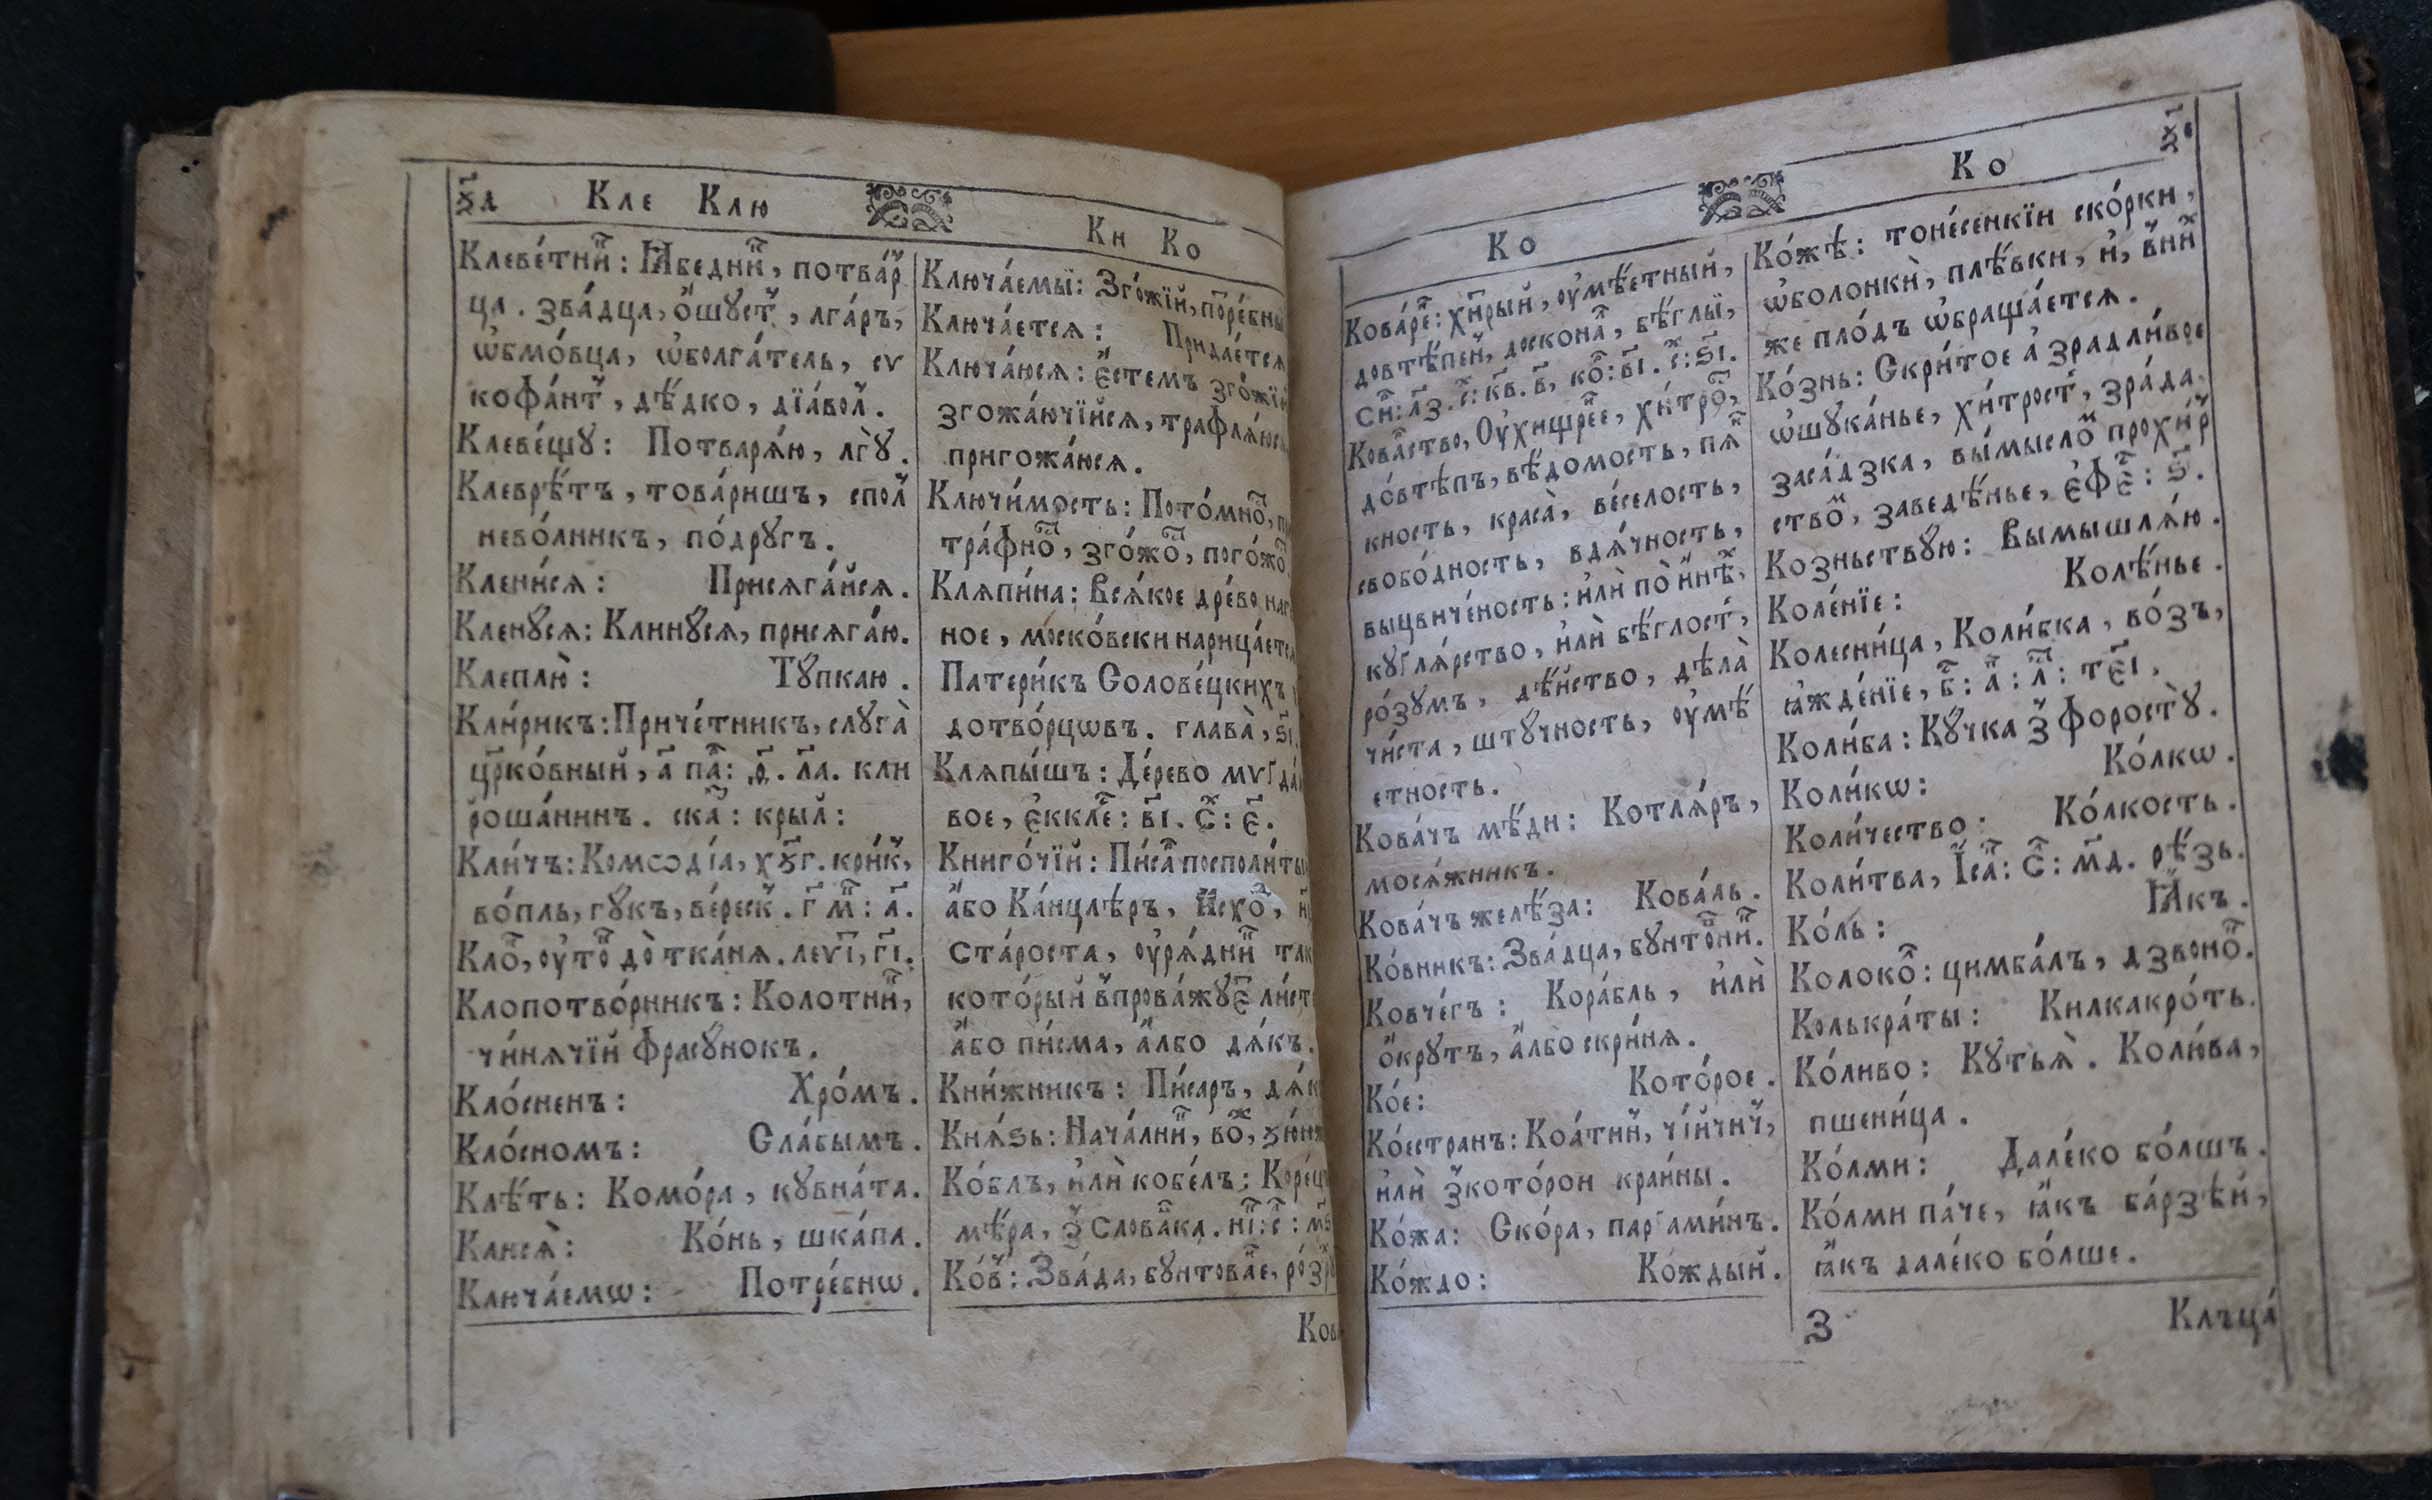 Кле Клю
Клеве́тни́й: Ꙗ҆бедни́й, потва́р
ца. зва́дца, ѻ҆шꙋст, лга́ръ,
ѡ҆бмо́вца, ѡ҆болга́тель, сѵ
кофа́нт, дѣ́дко, дїа́вол.
Клеве́щꙋ: Потварѧ́ю, лгꙋ̀.
Клеврѣ́тъ, това́ришъ, спол
нево́лникъ, по́дрꙋгъ.
Клени́сѧ: Присѧга́йсѧ.
Кленꙋ́сѧ: Клинꙋ́сѧ, присѧга́ю.
Клеплю̀: Тꙋ́пкаю.
Кли́рикъ: Приче́тникъ, слꙋга̀
цр҃ко́вный, а҃ па: р҃. ла. кли
роша́нинъ. ска: крыл:
Кли́чъ: Комѡді́а, хꙋ́г. крик,
во́пль, гꙋкъ, ве́реск. г҃ м҃: а҃.
Кло, ᲂу҆то до̀ тка́нѧ. леѵі, гі҃.
Клопотво́рникъ: Колотни́,
чи́нѧчїй фрасꙋнокъ.
Кло́сненъ: Хро́мъ.
Кло́сномъ: Сла́бымъ.
Клѣ́ть: Комо́ра, кꙋвна́та.
Клисѧ̀: Ко́нь, шка́па.
Ключа́емѡ: Потре́бнѡ.
Кн Ко
Ключа́емы: Зго́жїй, потре́бны
Ключа́етсѧ: Придае́тсѧ
Ключа́юсѧ: Е҆́стемъ зго́жїй
згожа́ючїйсѧ, трафлѧ́юсѧ
пригожа́юсѧ.
Ключи́мость: Пото́мно,
тра́фно, зго́жо, пого́жо
Клѧпи́на: Всѧ́кое дре́во
ное, моско́вски нарица́етсѧ
Патери́къ Солове́цкихъ
дотво́рцѡвъ. глава̀, ѕі҃.
Клѧпы́шъ: Де́рево мѵгда́
вое, є҆ккле: ві҃. с: є҃.
Книго́чїй: Пи́са посполи́ты
а҆́бо Ка́нцлѣръ, Исхо,
ста́роста, ᲂу҆рѧ́дни так
кото́рый впрова́жꙋе ли́ст
а҆́бо пи́сма, а҆́лбо дѧ́къ.
Кни́жникъ: Пи́саръ, дѧ́к
Кнѧ́зь: Нача́лни, во,
Ко́блъ, и҆лѝ кобе́лъ: Коре́ц
мѣ́ра, з слова́ка. ні҃: с: м҃
Ко́в: Зва́да, бꙋнтова́е, ро́з
Ков
Ко
Кова́ре: хи́трый, ᲂу҆мѣ́етный,
довтѣ́пен, доскона, бѣ́глы,
Сі: л҃з. г: кв҃. в҃, ко: ві҃. с: ѕі҃.
Кова́ство, Оу҆хищре́е, хи́тро,
до́втѣпъ, вѣ́домость, пѧ
кность, краса̀, ве́селость,
свобо́дность, вдѧ́чность,
выцвиче́ность: и҆лѝ по̀ и҆́нѣ,
кꙋглѧ́рство, и҆лѝ бѣ́глост,
ро́зꙋмъ, дѣ́йство, дѣ́ла
чи́ста, штꙋ́чность, ᲂу҆мѣ́
етность.
Кова́чъ мѣ́ди: Котлѧ́ръ,
мосѧ́жникъ.
Кова́чъ желѣ́за: Кова́ль.
Ко́вникъ: Зва́дца, бꙋнто́вни.
Ковче́гъ: Кора́бль, и҆лѝ
ѻ҆́крꙋтъ, а҆́лбо скри́нѧ.
Ко́е: Кото́рое.
Ко́естранъ: Коа́тни, чі́йчи,
и҆лѝ з кото́рои краи́ны.
Ко́жа: Ско́ра, паргами́нъ.
Ко́ждо: Ко́ждый.
Ко
Ко́жѣ: тоне́сенкїи ско́рки,
ѡ҆болонкѝ, плѣ́вки, и҆, в ни
же пло́дъ ѡ҆браща́етсѧ.
Ко́знь: Скри́тое а҆ зрадли́вое
ѡ҆шꙋка́нье, хи́трост, зра́да.
заса́дзка, вы́мысло прохи́р
ство, заведѣ́нье, є҆фе: ѕ҃.
Козньствꙋю: Вымышлѧ́ю.
Коле́нїе: Колѣ́нье.
Колесни́ца, Коли́бка, во́зъ,
ꙗ҆жде́нїе, в: а: л: тєі.
Коли́ба: Кꙋ́чка з форостꙋ̀.
Коли́кѡ: Ко́лкѡ.
Коли́чество: Ко́лкость.
Коли́тва, І҆са: с: м҃д. рѣ́зь.
Ко́ль: Ꙗ҆́къ.
Колоко: цимба́лъ, дзвоно.
Колькра́ты: Килкакро́ть.
Ко́ливо: Кꙋтьѧ̀. Коли́ва,
пшени́ца.
Ко́лми: Дале́ко бо́лшъ.
Ко́лми па́че, ꙗ҆́къ ба́рзѣй,
ꙗ҆́къ дале́ко бо́лше.
З Клъца́